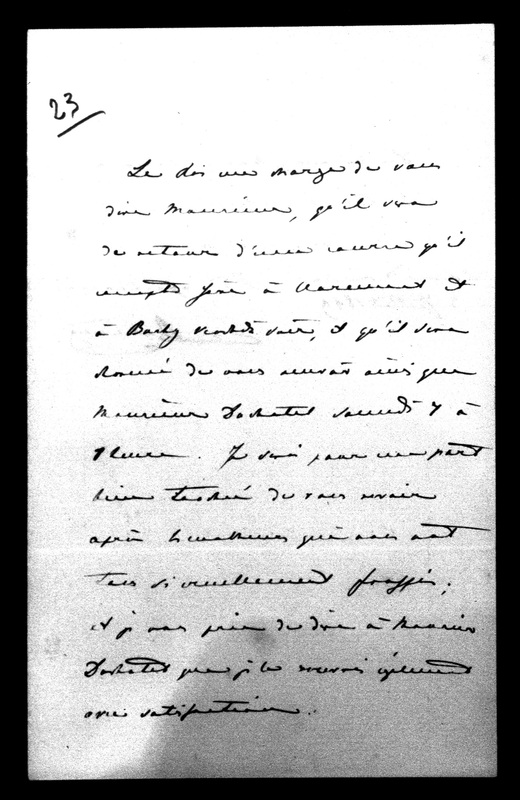 23
Le Roi me charge de vous
dire Monsieur, qu'il sera
de retour d'une course qu'il
compte faire à Claremont et
à Bushy vendredi soir, et qu'il sera
charmé de vous revoir ainsi que
Monsieur Duchatel samedi 7 à
1 heure. Je serai pour ma part
bien touchée de vous revoir
après les malheurs qui nous ont
tous si cruellement frappés,
et je vous prie de dire à Monsieur
Duchatel que je le reverrai également
avec satisfaction.